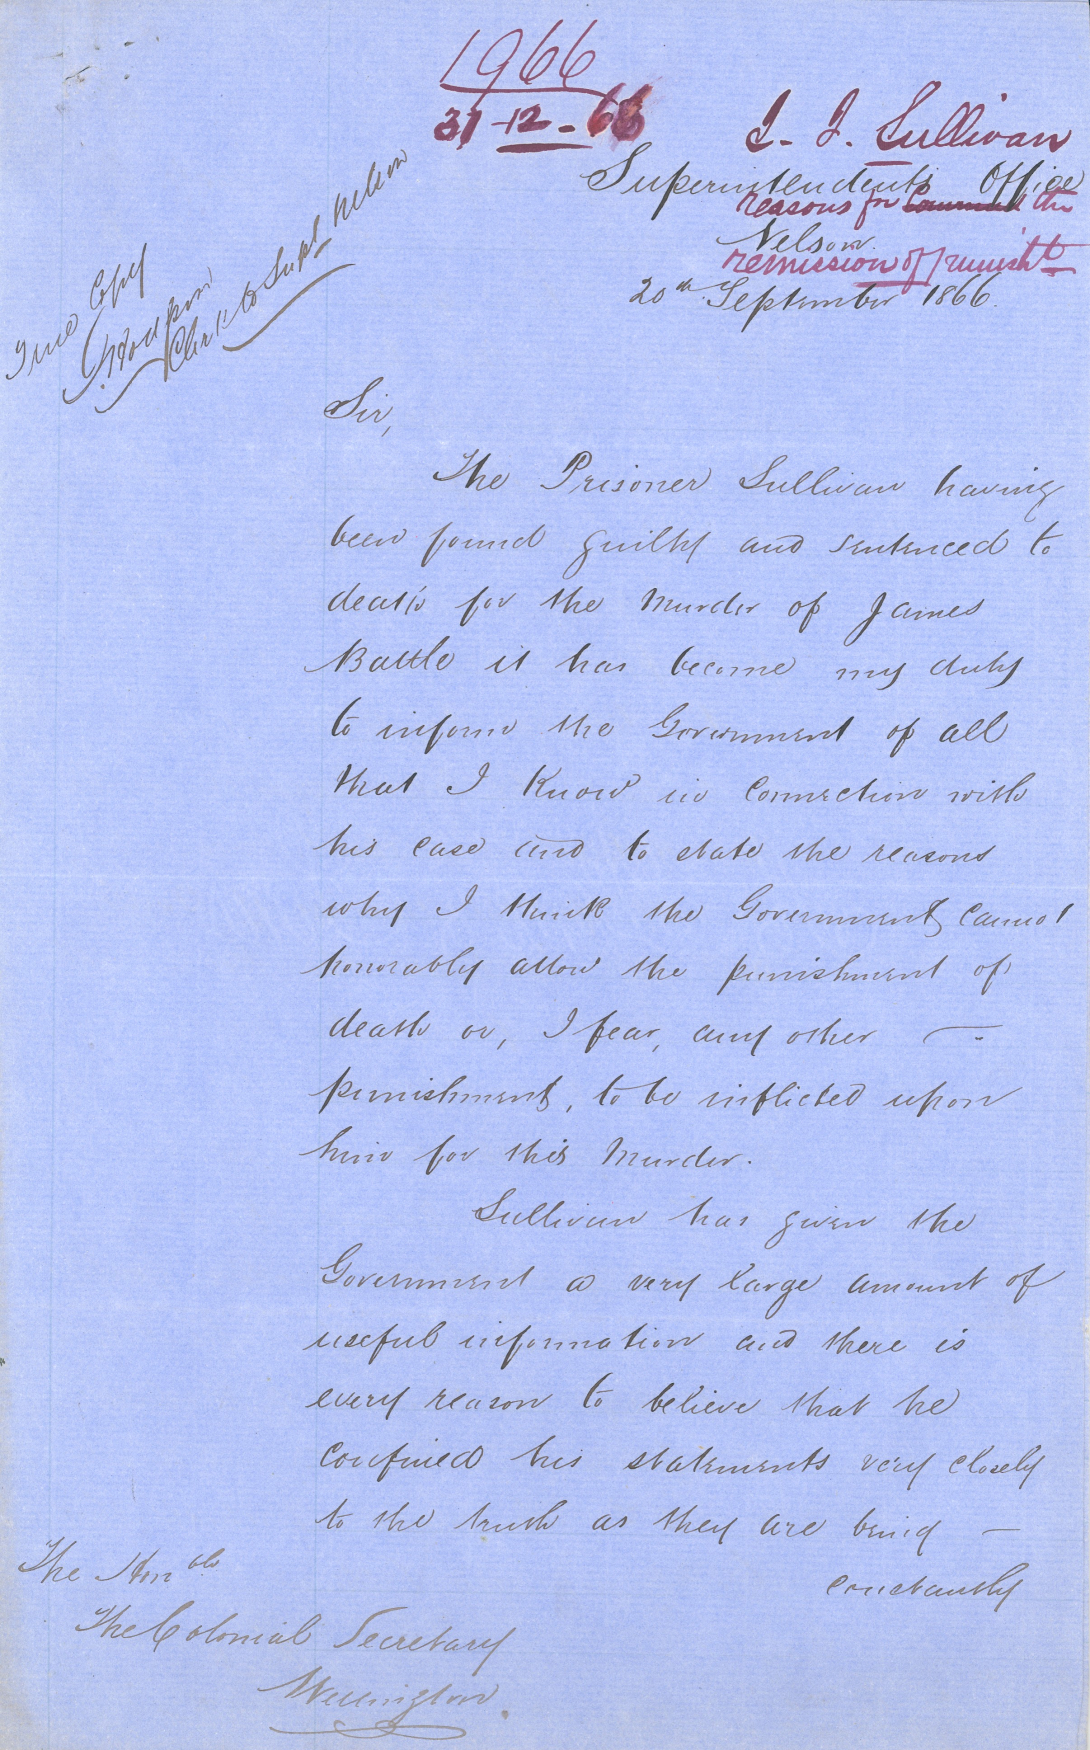 1966
31-12-66
J. J. Sullivan
reasons for Commut the
remission of punisht
Superintendent's Office
Nelson.
20th September 1866.
True Copy
Clerk to Supt Nelson
Sir,
The Prisoner Sullivan having
been found guilty and sentenced to
death for the Murder of James
Battle it has become my duty
to inform the Government of all
that I know in connection with
his case and to state the reasons
why I think the Government cannot
honorably allow the punishment of
death or, I fear, any other —
punishment, to be inflicted upon
him for this Murder.
Sullivan has given the
Government a very large amount of
useful information and there is
every reason to believe that he
confined his statements very closely
to the truth as they are being —
constantly
The Honble
The Colonial Secretary
Wellington.